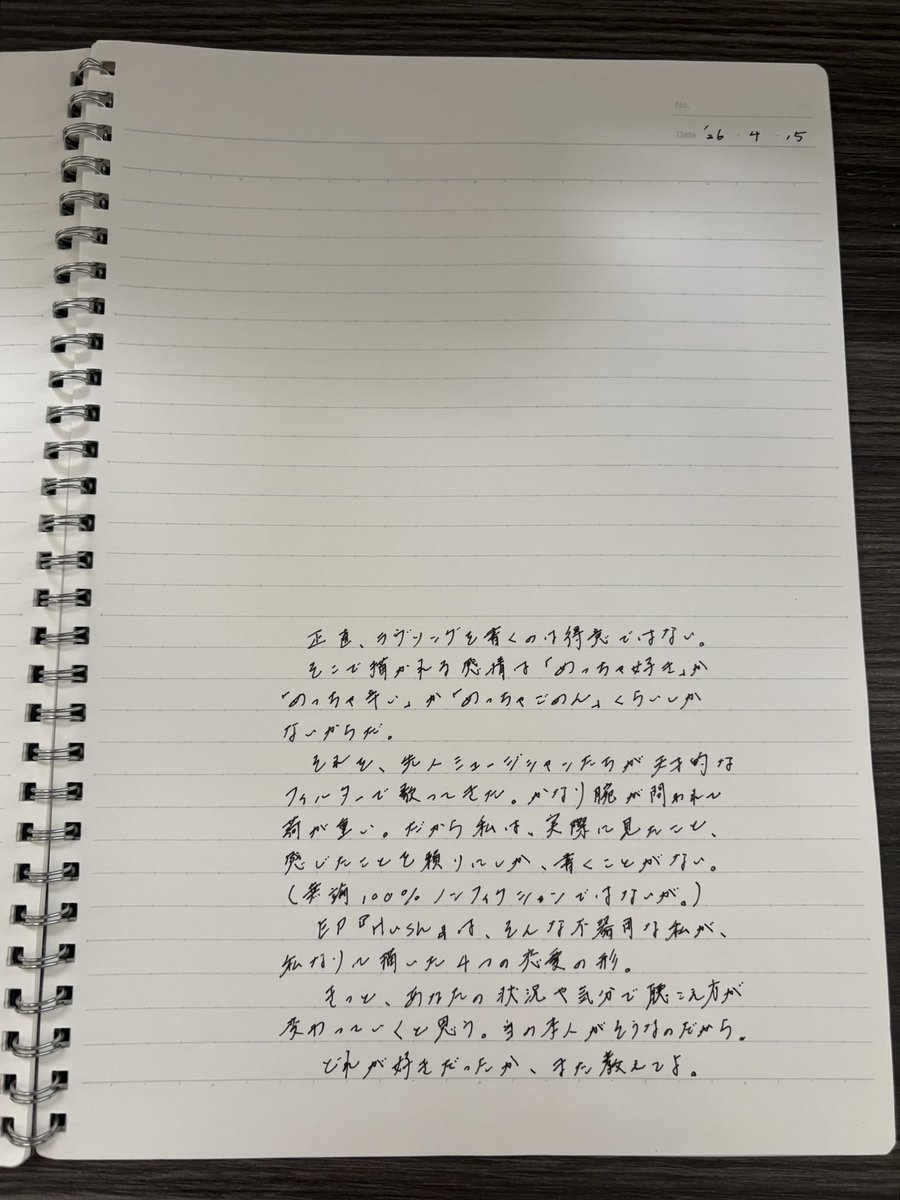 No.
Date '26・4・15
正直、ラブソングを書くのは得意ではない。
そこで描かれる感情は「めっちゃ好き」か
「めっちゃ辛い」か「めっちゃごめん」くらいしか
ないからだ。
それを、先人ミュージシャンたちが天才的な
フィルターで歌ってきた。かなり腕が問われて
荷が重い。だから私は、実際に見たこと、
感じたことを頼りにしか、書くことがない。
(無論100%ノンフィクションではないが。)
EP『Hush』は、そんな不器用な私が、
私なりに描いた4つの恋愛の形。
きっと、あなたの状況や気分で聴こえ方が
変わっていくと思う。当の本人がそうなのだから。
どれが好きだったか、また教えてよ。